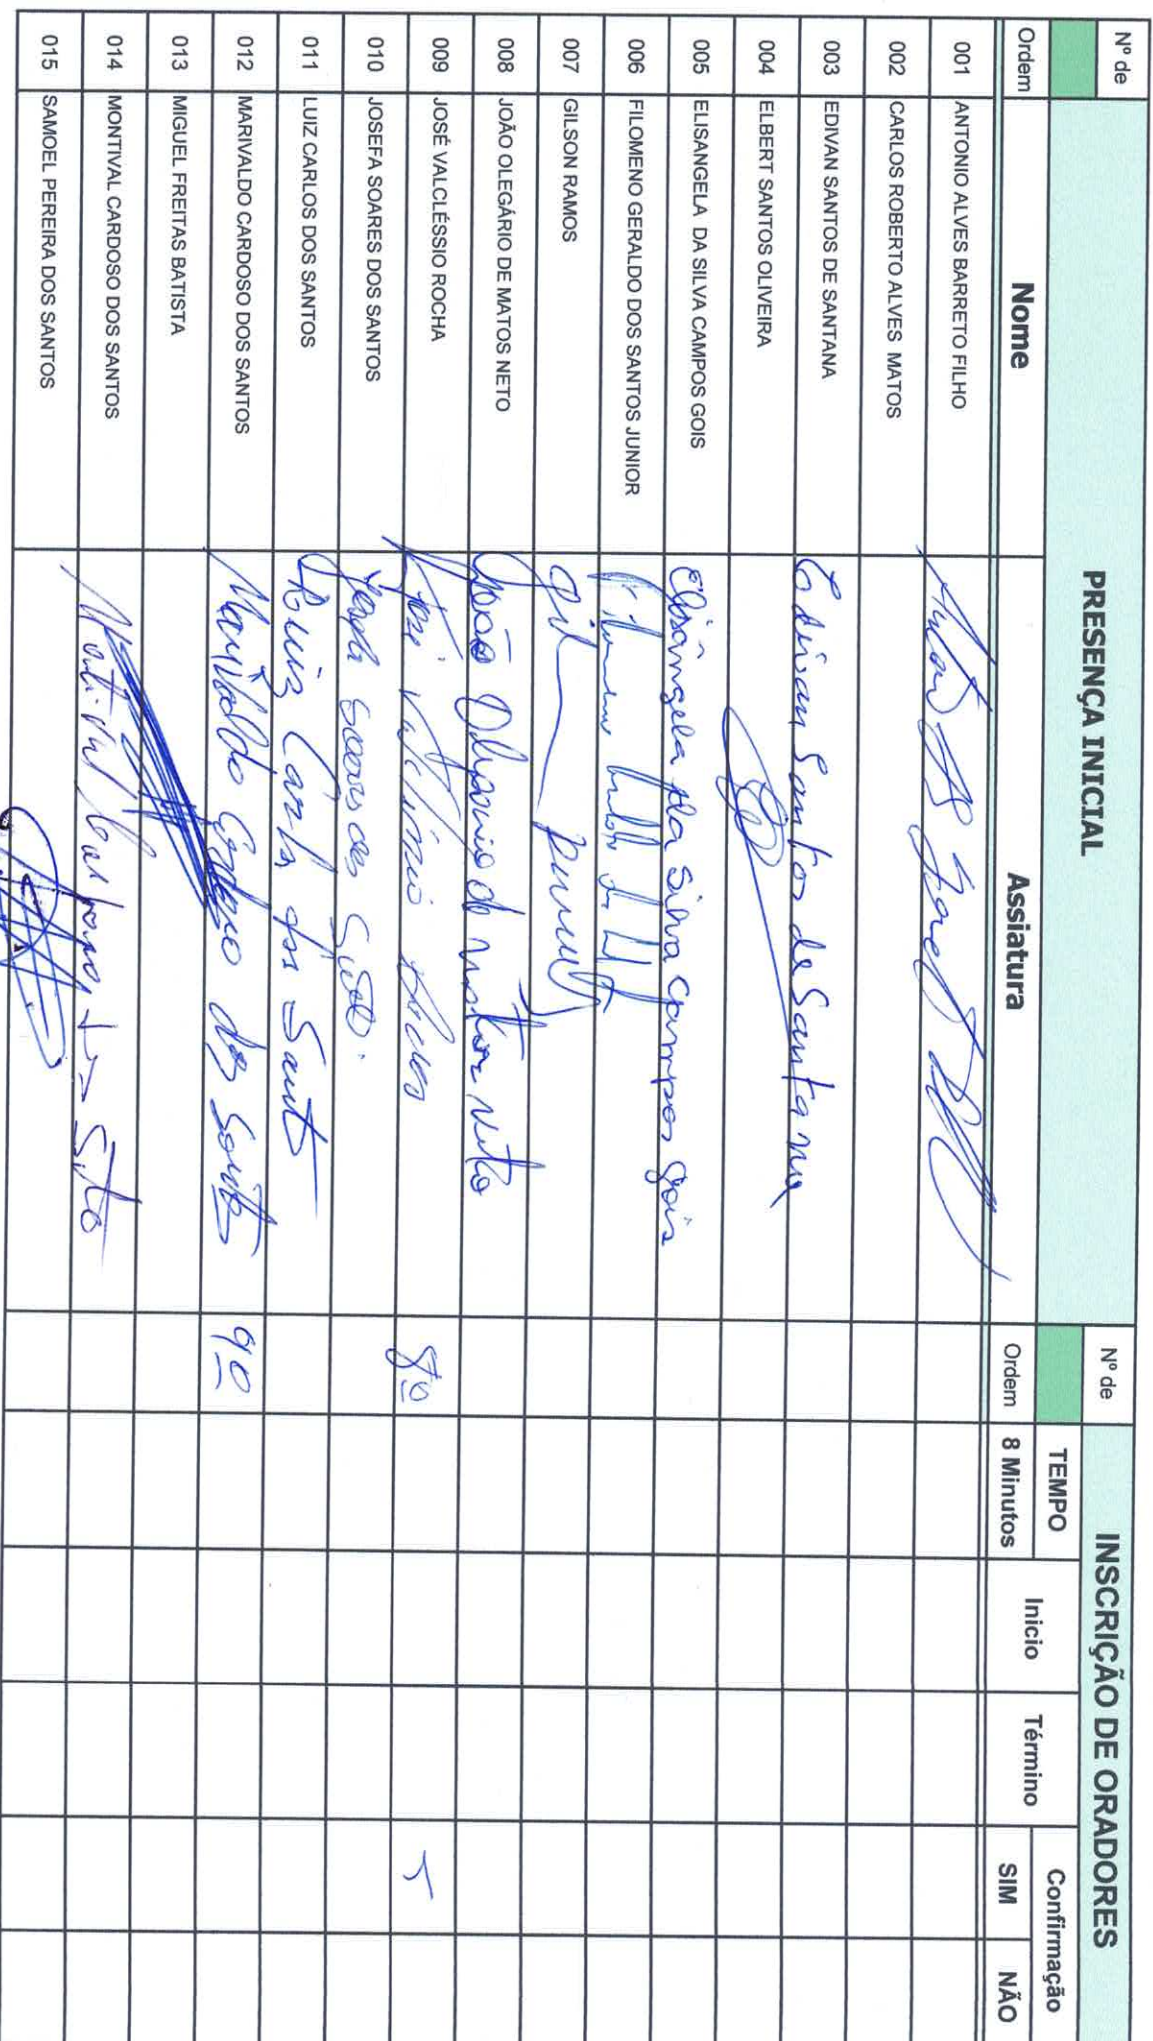 Nº de PRESENÇA INICIAL Nº de INSCRIÇÃO DE ORADORES
TEMPO Confirmação
Ordem Nome Assiatura Ordem 8 Minutos Inicio Término SIM NÃO
001 ANTONIO ALVES BARRETO FILHO
002 CARLOS ROBERTO ALVES MATOS
003 EDIVAN SANTOS DE SANTANA Edivan Santos de Santana
004 ELBERT SANTOS OLIVEIRA
005 ELISANGELA DA SILVA CAMPOS GOIS Elisângela da Silva Campos Gois
006 FILOMENO GERALDO DOS SANTOS JUNIOR
007 GILSON RAMOS
008 JOÃO OLEGÁRIO DE MATOS NETO João Olegario de Matos Neto
009 JOSÉ VALCLÉSSIO ROCHA José 8º
010 JOSEFA SOARES DOS SANTOS Josefa Soares dos
011 LUIZ CARLOS DOS SANTOS Luiz Carlos dos Sant
012 MARIVALDO CARDOSO DOS SANTOS Marivaldo Cardoso dos Santos 9º
013 MIGUEL FREITAS BATISTA
014 MONTIVAL CARDOSO DOS SANTOS Montival
015 SAMOEL PEREIRA DOS SANTOS